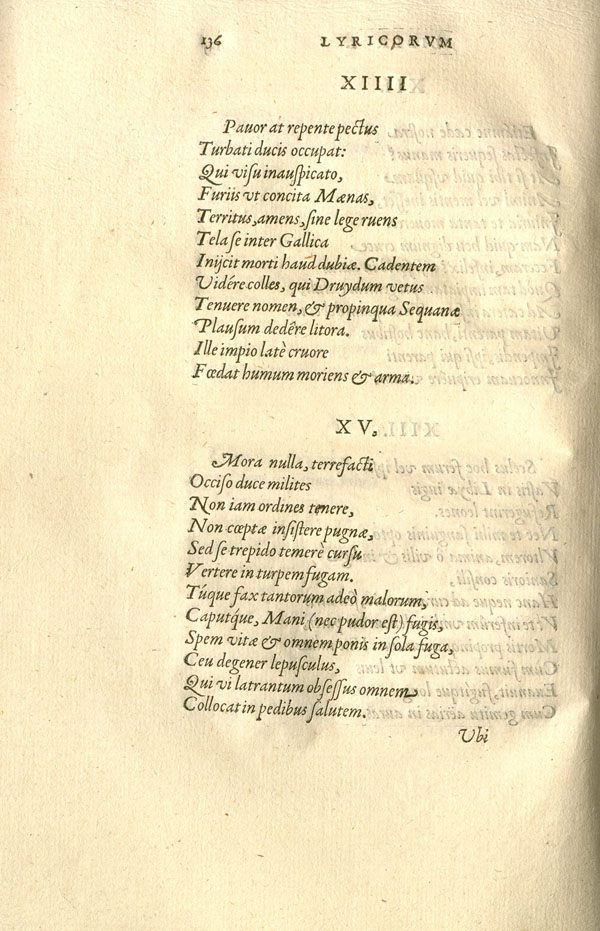 136 LYRICORVM
XIIIII
Pauor at repente pectus
Turbati ducis occupat:
Qui visu inauspicato,
Furiis vt concita Mænas,
Territus, amens, sine lege ruens
Tela se inter Gallica
Inijcit morti haud dubiæ. Cadentem
Uidére colles, qui Druydum vetus
Tenuere nomen, & propinqua Sequanæ
Plausum dedére litora.
Ille impio latè cruore
Fœdat humum moriens & arma.
XV.
Mora nulla, terrefacti
Occiso duce milites
Non iam ordines tenere,
Non cœptæ insistere pugnæ,
Sed se trepido temerè cursu
Vertere in turpem fugam.
Túque fax tantorum adeò malorum,
Caputq́ue, Mani (nec pudor est) fugis,
Spem vitæ & omnem ponis in sola fuga,
Ceu degener lepusculus,
Qui vi latrantum obsessus omnem
Collocat in pedibus salutem.
Ubi